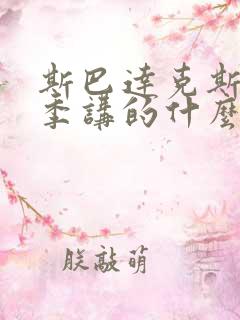 斯巴達克斯
季講的什麼
朕敲萌